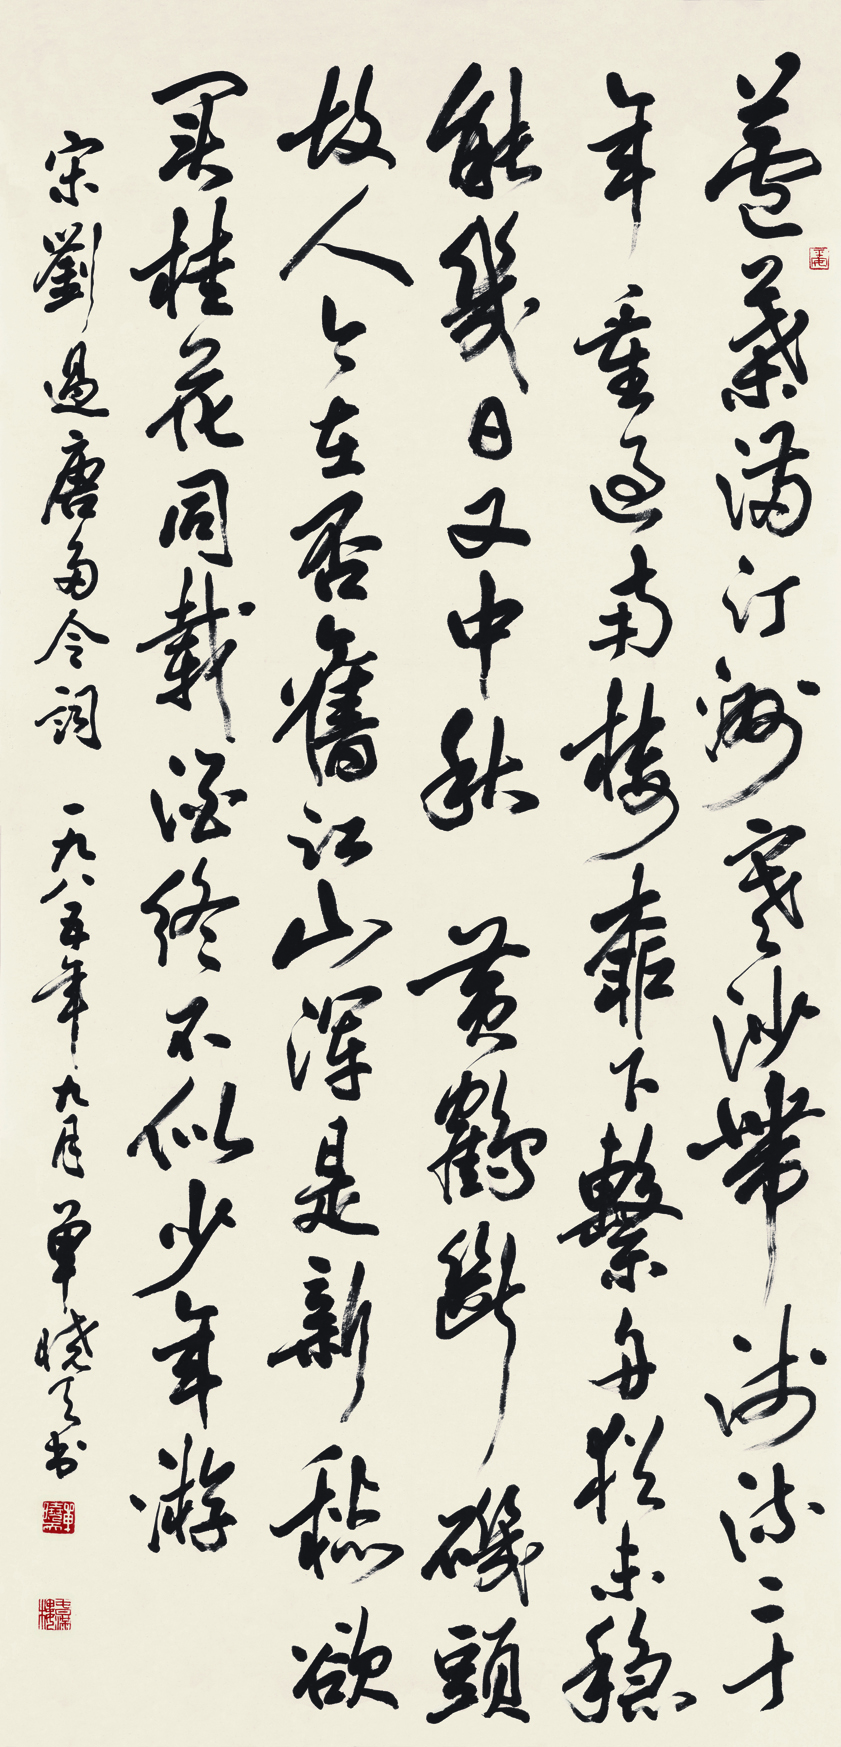 蘆葉滿汀洲寒沙帶淺流二十
年重過南樓柳下繫舟猶未穩
能幾日又中秋黃鶴斷磯頭
故人今在否舊江山渾是新愁欲
买桂花同載酒終不似少年游
宋劉過唐多令詞一九八五年九月單曉天书